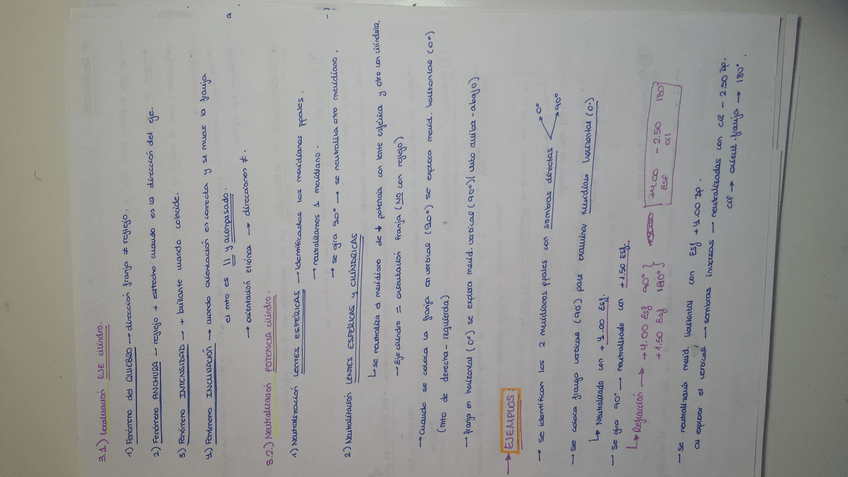 3.1) Localización EJE cilindro.
1) Fenómeno del QUIEBRO → dirección franja ≠ reflejo.
2) Fenómeno ANCHURA → reflejo + estrecho cuando es la dirección del eje.
3) Fenómeno INTENSIDAD → + brillante cuando coincide.
4) Fenómeno INCLINACIÓN → cuando orientación es correcta y se mueve la franja
el mto es || y acompasado.
→ orientación errónea → direcciones ≠.
3.2.) Neutralización POTENCIA cilindro.
1) Neutralización LENTES ESFÉRICAS → Identificados los meridianos ppales.
→ neutralizamos 1 meridiano.
→ se gira 90° → se neutraliza otro meridiano.
2) Neutralización LENTES ESFÉRICAS Y CILÍNDRICAS
↳ se neutraliza el meridiano de + potencia con lente esférica y otro con cilíndrica.
→ Eje cilindro = orientación franja (NO con reflejo)
→ Cuando se coloca la franja en vertical (90°) se explora merid. horizontal (0°)
(mto de derecha-izquierda)
→ franja en horizontal (0°) se explora merid. vertical (90°) (mto arriba-abajo)
→ EJEMPLOS:
→ se identifican los 2 meridianos ppales con sombras directas 0° 90°
→ se coloca franja vertical (90°) para examinar meridiano horizontal (0°)
↳ Neutralizado con +4.00 Esf.
→ se gira 90° → neutralizado con +1.50 Esf
↳ Refracción → +4.00 Esf 90° }
+1.50 Esf 180° }
+4.00 - 2.50 180°
Esf cil
→ se neutralizará merid. horizontal con Esf +4.00 Dp.
al explorar el vertical → sombras inversas → neutralizadas con cil - 2.50 Dp.
cil → orient. franja → 180°.